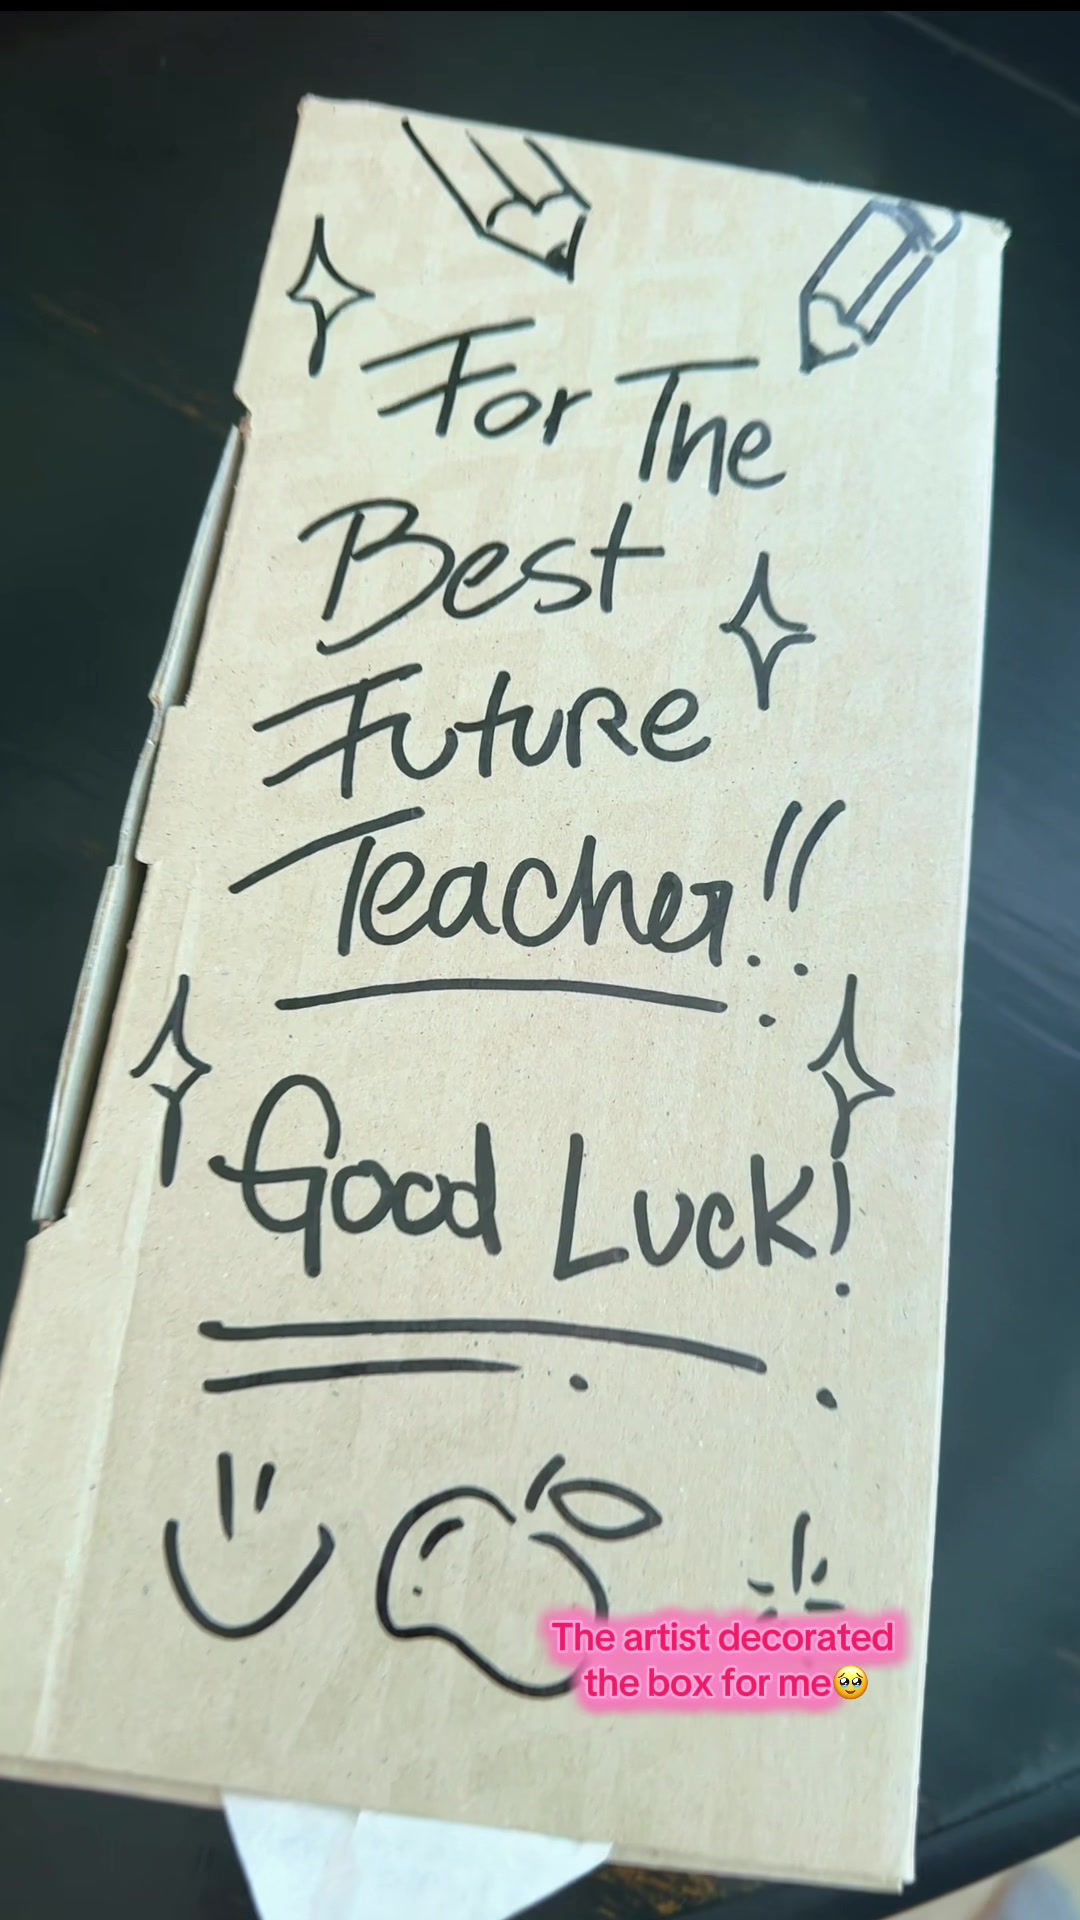 For The
Best
Future
Teacher!!
Good Luck!
The artist decorated
the box for me🥹